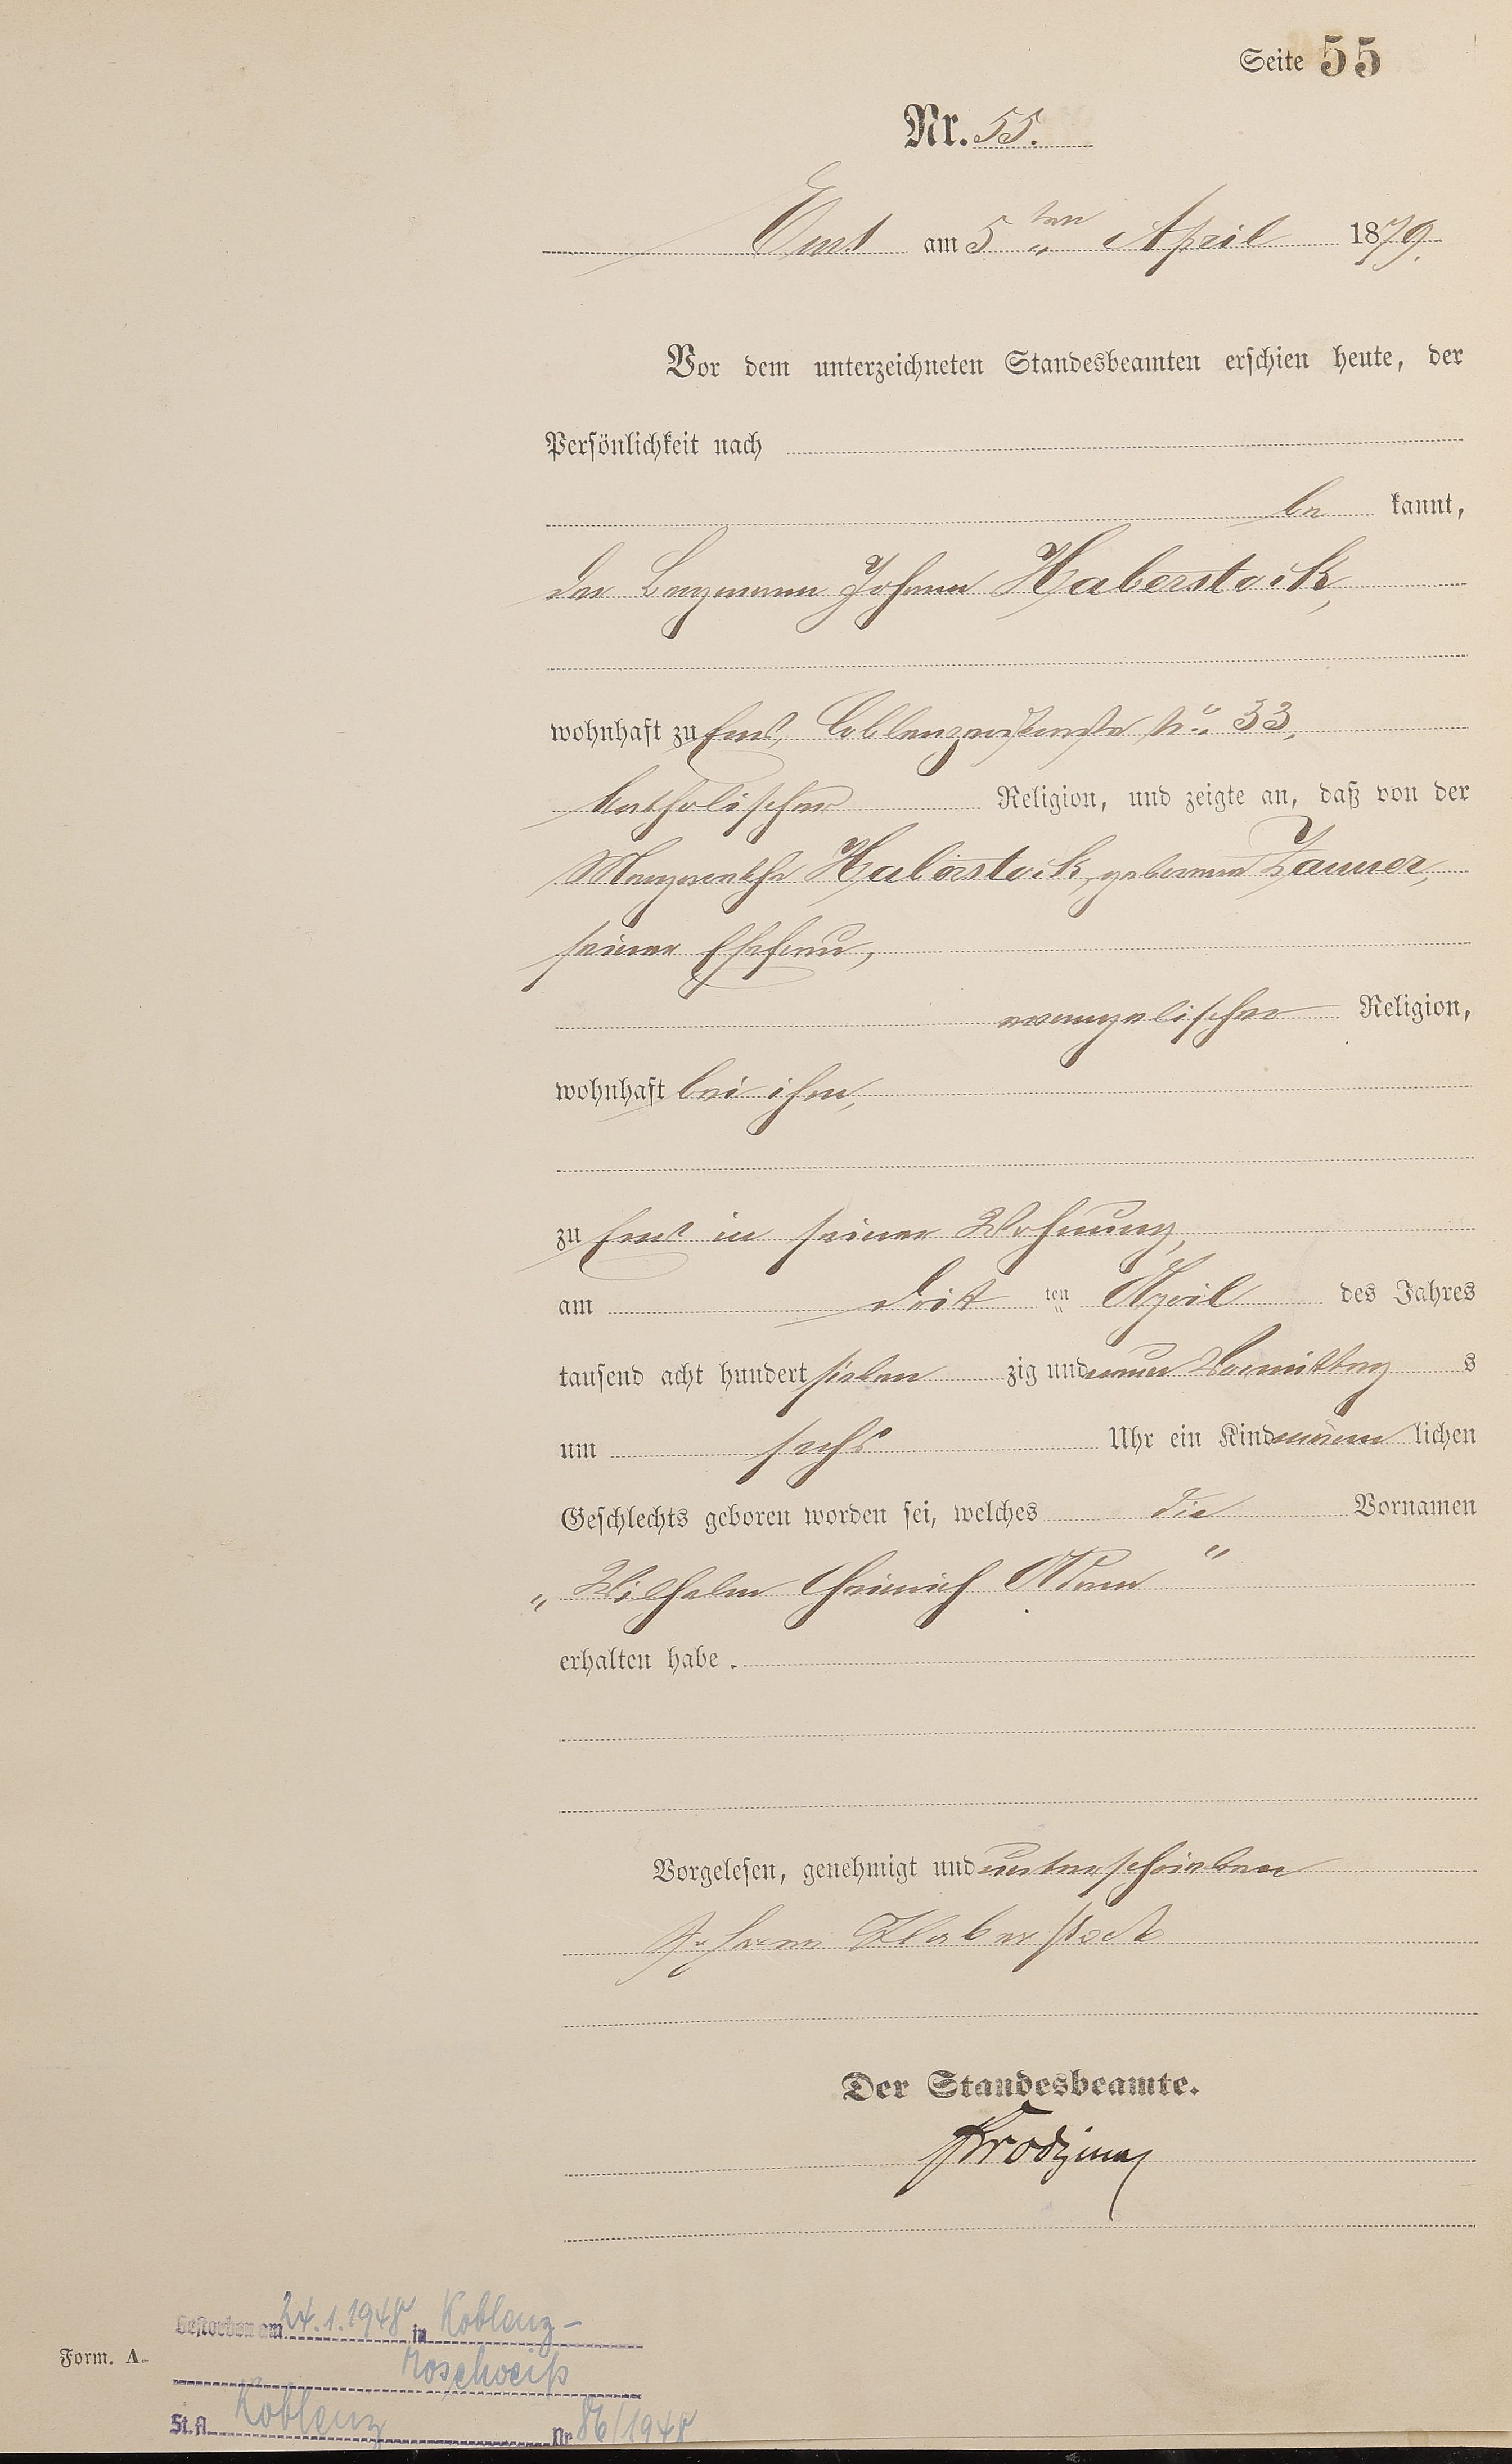 Seite 55
Nr. 55.
Ems am 5ten April 1879.
Vor dem unterzeichneten Standesbeamten erschien heute, der
Persönlichkeit nach
be kannt,
der Bergmann Johann Haberstock,
wohnhaft zu Ems, Coblenzerstraße No. 33,
katholischer Religion, und zeigte an, daß von der
Margarethe Haberstock, geborene Zanner,
seiner Ehefrau,
evangelischer Religion,
wohnhaft bei ihm,
zu Ems in seiner Wohnung,
am dritten April des Jahres
tausend acht hundert sieben zig und neun Vormittag s
um sechs Uhr ein Kind männ lichen
Geschlechts geboren worden sei, welches die Vornamen
„Wilhelm Heinrich Adam“
erhalten habe.
Vorgelesen, genehmigt und unterschrieben
Johann Haberstock
Der Standesbeamte.
Gestorben am 24.1.1948 in Koblenz-
Form. A.
Moselweiß
St. A. Koblenz Nr. 86/1948